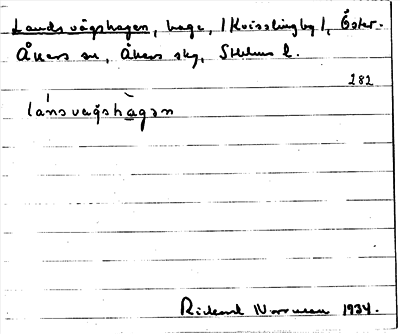 Landsvägshagen, hage, (Kvisslingby), Öster-
Åkers sn, Åkers skg, Sthlms l.
282
lánsvaǧshàgən
Rickard Norrman 1934.